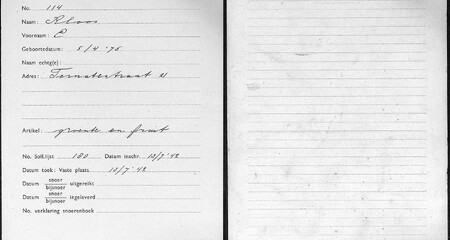 No. 114
Naam: Kloos
Voornaam: E
Geboortedatum: 5/4 '75
Naam echtg(e):
Adres: Ternatestraat 11
Artikel: groente en fruit
No. Soll.lijst 180 Datum inschr. 10/7 '42
Datum toek: Vaste plaats 10/7 '42
Datum snoer/bijsnoer uitgereikt
Datum snoer/bijsnoer ingeleverd
No. verklaring snoerenboek